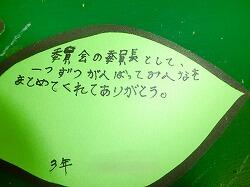 委員会の委員長として、
一つずつがんばってみんなを
まとめてくれてありがとう。
3年